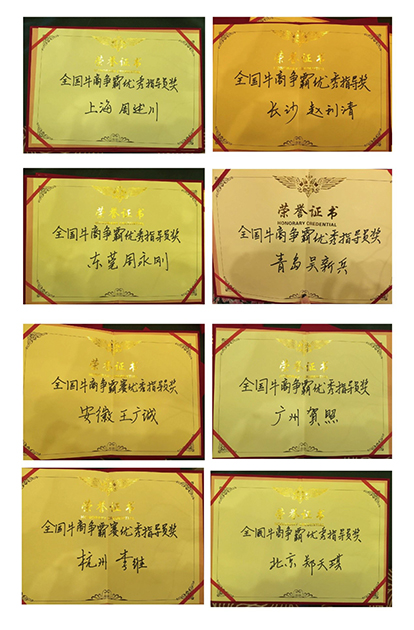 荣誉证书
全国牛商争霸优秀指导员奖
上海 周建川
荣誉证书
全国牛商争霸优秀指导员奖
长沙 赵利清
荣誉证书
全国牛商争霸优秀指导员奖
东莞 周永刚
荣誉证书
HONORARY CREDENTIAL
全国牛商争霸优秀指导员奖
青岛 吴新兵
荣誉证书
全国牛商争霸赛优秀指导员奖
安徽 王广诚
荣誉证书
全国牛商争霸优秀指导员奖
广州 贺照
荣誉证书
全国牛商争霸赛优秀指导员奖
杭州 李维
荣誉证书
全国牛商争霸优秀指导员奖
北京 郑天琪